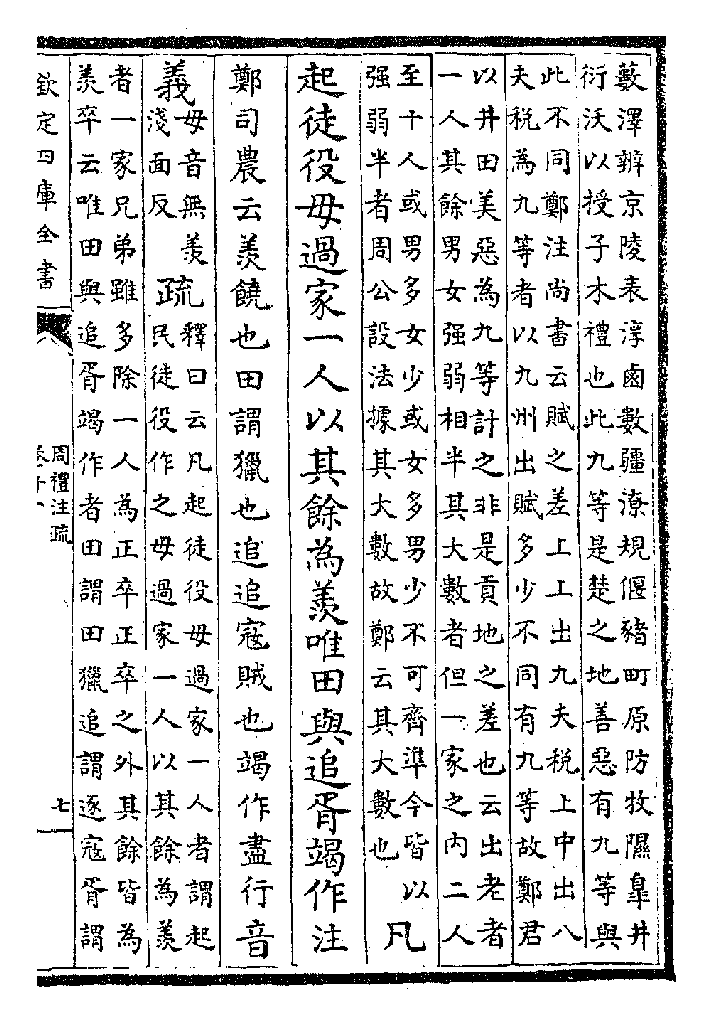 藪澤辨京陵表淳鹵數疆潦規偃豬町原防牧隰臯井
衍沃以授子木禮也此九等是楚之地善惡有九等與
此不同鄭注尚書云賦之差上上出九夫税上中出八
夫税為九等者以九州出賦多少不同有九等故鄭君
以井田美惡為九等計之非是貢地之差也云出老者
一人其餘男女强弱相半其大數者但一家之内二人
至十人或男多女少或女多男少不可齊準今皆以
强弱半者周公設法據其大數故鄭云其大數也
凡
起徒役毋過家一人以其餘為羨唯田與追胥竭作注
鄭司農云羨饒也田謂獵也追追寇賊也竭作盡行音
義
毋音無羨
淺面反
疏
釋曰云凡起徒役毋過家一人者謂起
民徒役作之毋過家一人以其餘為羨
者一家兄弟雖多除一人為正卒正卒之外其餘皆為
羨卒云唯田與追胥竭作者田謂田獵追謂逐寇胥謂
欽定四庫全書
周禮注疏
七